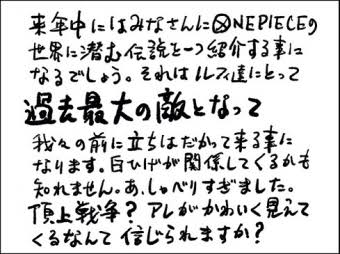 来年中にはみなさんにONE PIECEの
世界に潜む伝説を一つ紹介する事に
なるでしょう。それはルフィ達にとって
過去最大の敵となって
我々の前に立ちはだかって来る事に
なります。白ひげが関係してくるかも
知れません。あ、しゃべりすぎました。
頂上戦争?アレがかわいく見えて
くるなんて信じられますか?